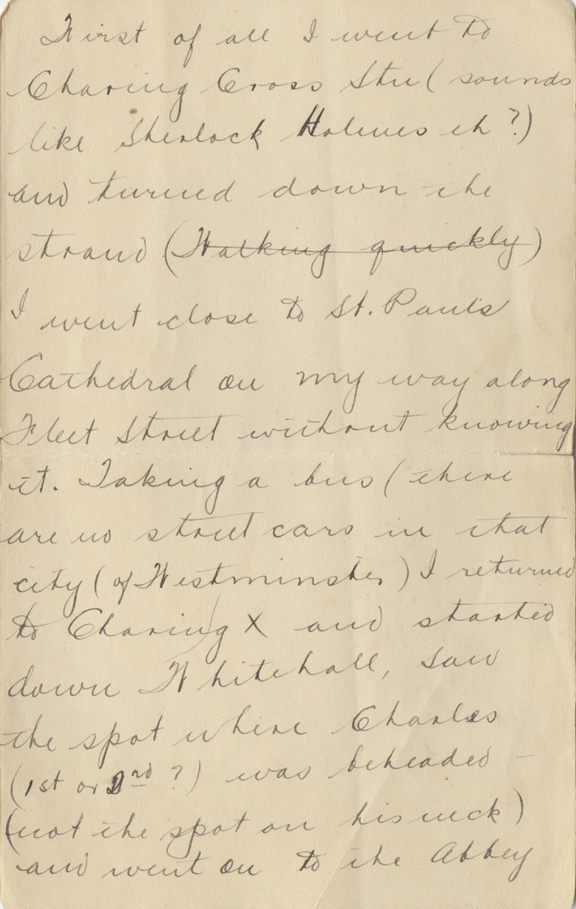 First of all I went to
Charing Cross Stn (sounds
like Sherlock Holmes eh?)
and turned down the
strand (Walking quickly)
I went close to St. Paul's
Cathedral on my way along
Fleet Street without knowing
it. Taking a bus (there
are no street cars in that
city (of Westminster) I returned
to Charing X and started
down Whitehall, saw
the spot where Charles
(1st or 2nd ?) was beheaded -
(not the spot on his neck)
and went on to the Abbey